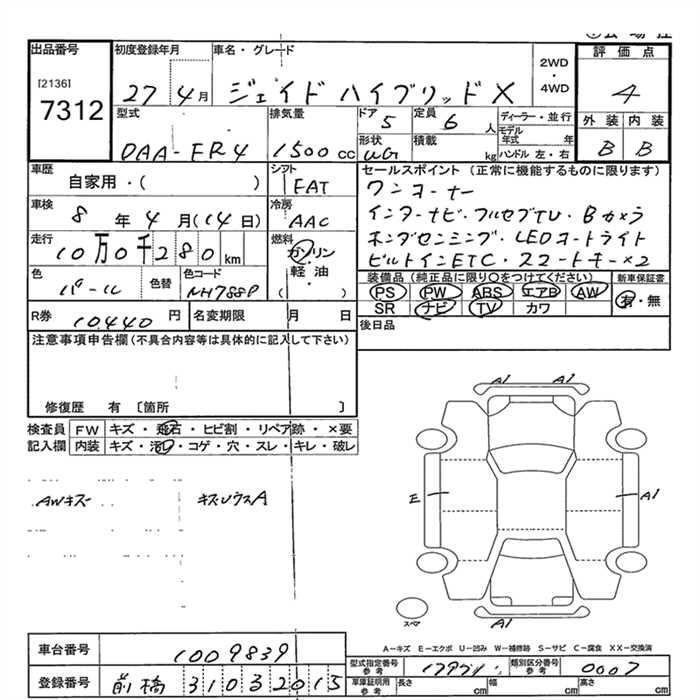 出品番号 初度登録年月 車名・グレード 評価点
[2136] 7312 27 4月 ジェイドハイブリッドX 2WD・4WD 4
型式 排気量 ドア 定員 ディーラー・並行 外装 内装
DAA-FR4 1500cc 5 6人 モデル年式 年 B B
形状 積載 kg ハンドル 左・右
WG
車歴 シフト セールスポイント(正常に機能するものに限ります)
自家用・( ) FAT ワンオーナー
車検 冷房 インターナビ・フルセグTV・Bカメラ
8年4月(14日) AAC ホンダセンシング・LEDオートライト
走行 燃料 ビルトインETC・スマートキー×2
10万0千280km ガソリン・軽油・( )
装備品(純正品に限り○をつけてください) 新車保証書
色 色替 色コード PS PW ABS エアB AW 有・無
パール NH788P SR ナビ TV カワ
R券 10440円 名変期限 月 日 後日品
注意事項申告欄(不具合内容等は具体的に記入して下さい)
修復歴 有 〔箇所 〕
検査員 FW キズ・飛石・ヒビ割・リペア跡・×要
記入欄 内装 キズ・汚れ・コゲ・穴・スレ・キレ・破レ
A1 A1
AWキズ キズUウスA
E A1
スペア A1
A-キズ E-エクボ U-凹み W-補修跡 S-サビ C-腐食 XX-交換済
車台番号 1009839
型式指定番号 参考 類別区分番号 参考 0007
登録番号 前橋 310 3 2015
車庫証明用 参考 長さ cm 幅 cm 高さ cm